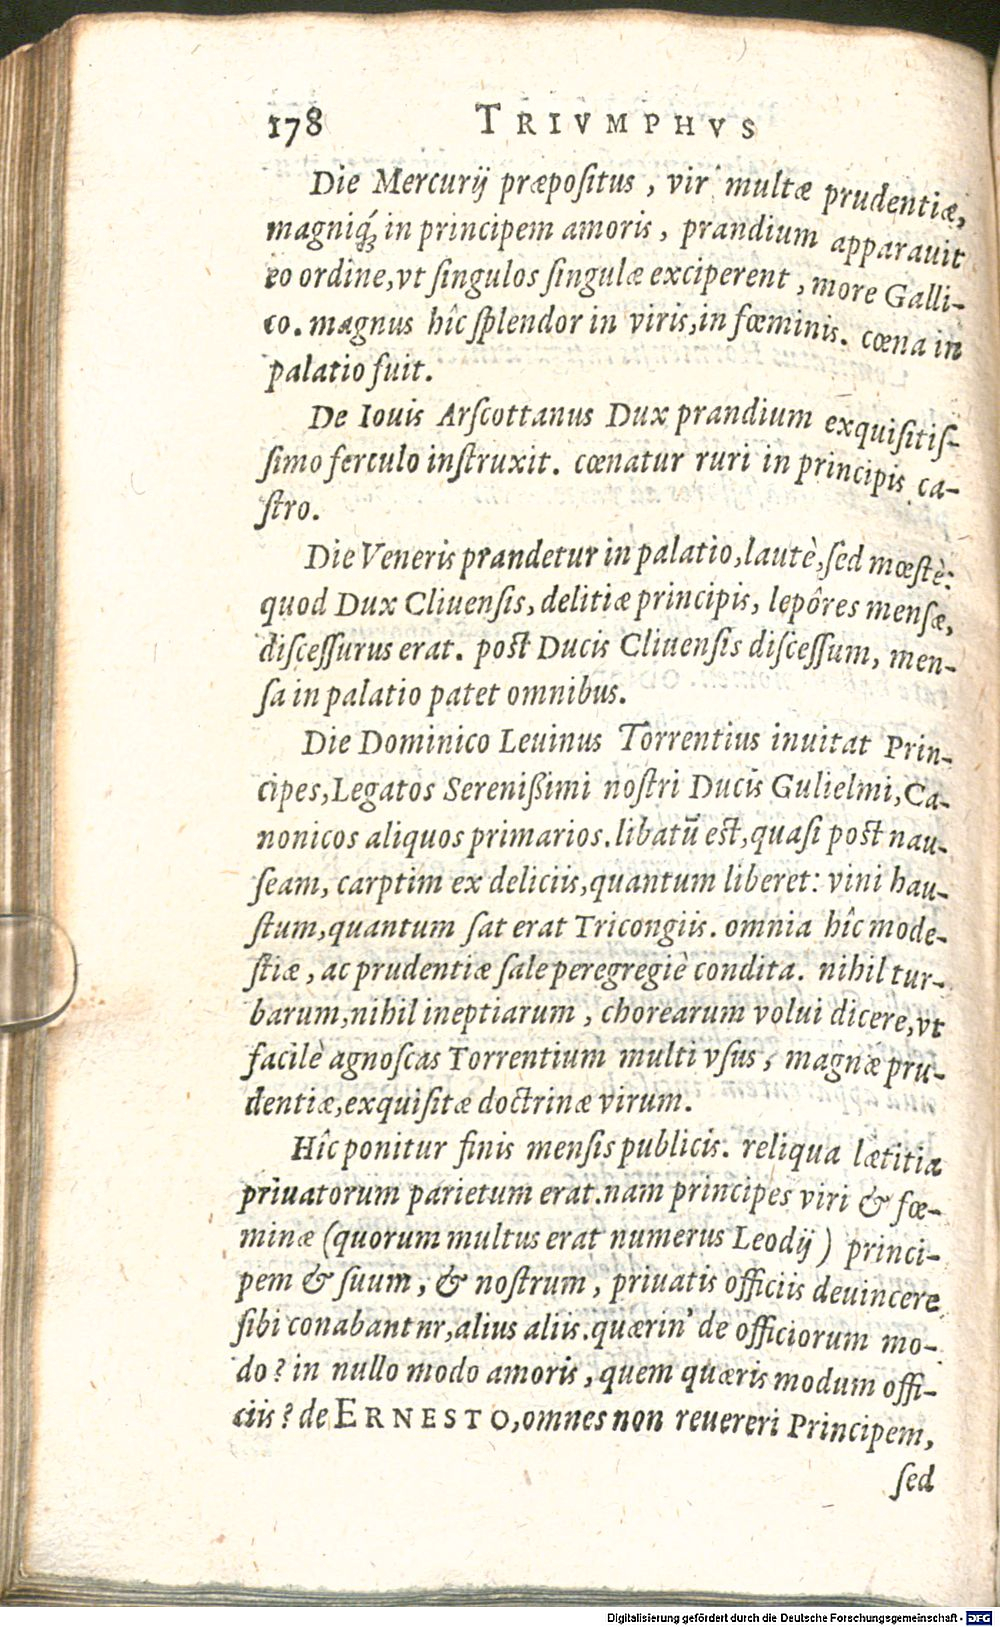 178 TRIVMPHVS
Die Mercurij præpositus, vir multæ prudentiæ,
magniq́; in principem amoris, prandium apparauit
eo ordine, vt singulos singulæ exciperent, more Galli-
co. magnus hîc splendor in viris, in fœminis. cœna in
palatio fuit.
De Iouis Arscottanus Dux prandium exquisitis-
simo ferculo instruxit. cœnatur ruri in principis ca-
stro.
Die Veneris prandetur in palatio, lautè, sed mœstè:
quod Dux Cliuensis, delitiæ principis, lepôres mensæ,
discessurus erat. post Ducis Cliuensis discessum, men-
sa in palatio patet omnibus.
Die Dominico Leuinus Torrentius inuitat Prin-
cipes, Legatos Serenißimi nostri Ducis Gulielmi, Ca-
nonicos aliquos primarios. libatū est, quasi post nau-
seam, carptim ex deliciis, quantum liberet: vini hau-
stum, quantum sat erat Tricongiis. omnia hîc mode-
stiæ, ac prudentiæ sale peregregiè condita. nihil tur-
barum, nihil ineptiarum, chorearum volui dicere, vt
facilè agnoscas Torrentium multi vsus, magnæ pru-
dentiæ, exquisitæ doctrinæ virum.
Hîc ponitur finis mensis publicis. reliqua lætitia
priuatorum parietum erat. nam principes viri & fœ-
minæ (quorum multus erat numerus Leodij) princi-
pem & suum, & nostrum, priuatis officiis deuincere
sibi conabantnr, alius aliis. quærin' de officiorum mo-
do? in nullo modo amoris, quem quæris modum offi-
ciis? de ERNESTO, omnes non reuereri Principem,
sed
Digitalisierung gefördert durch die Deutsche Forschungsgemeinschaft - DFG